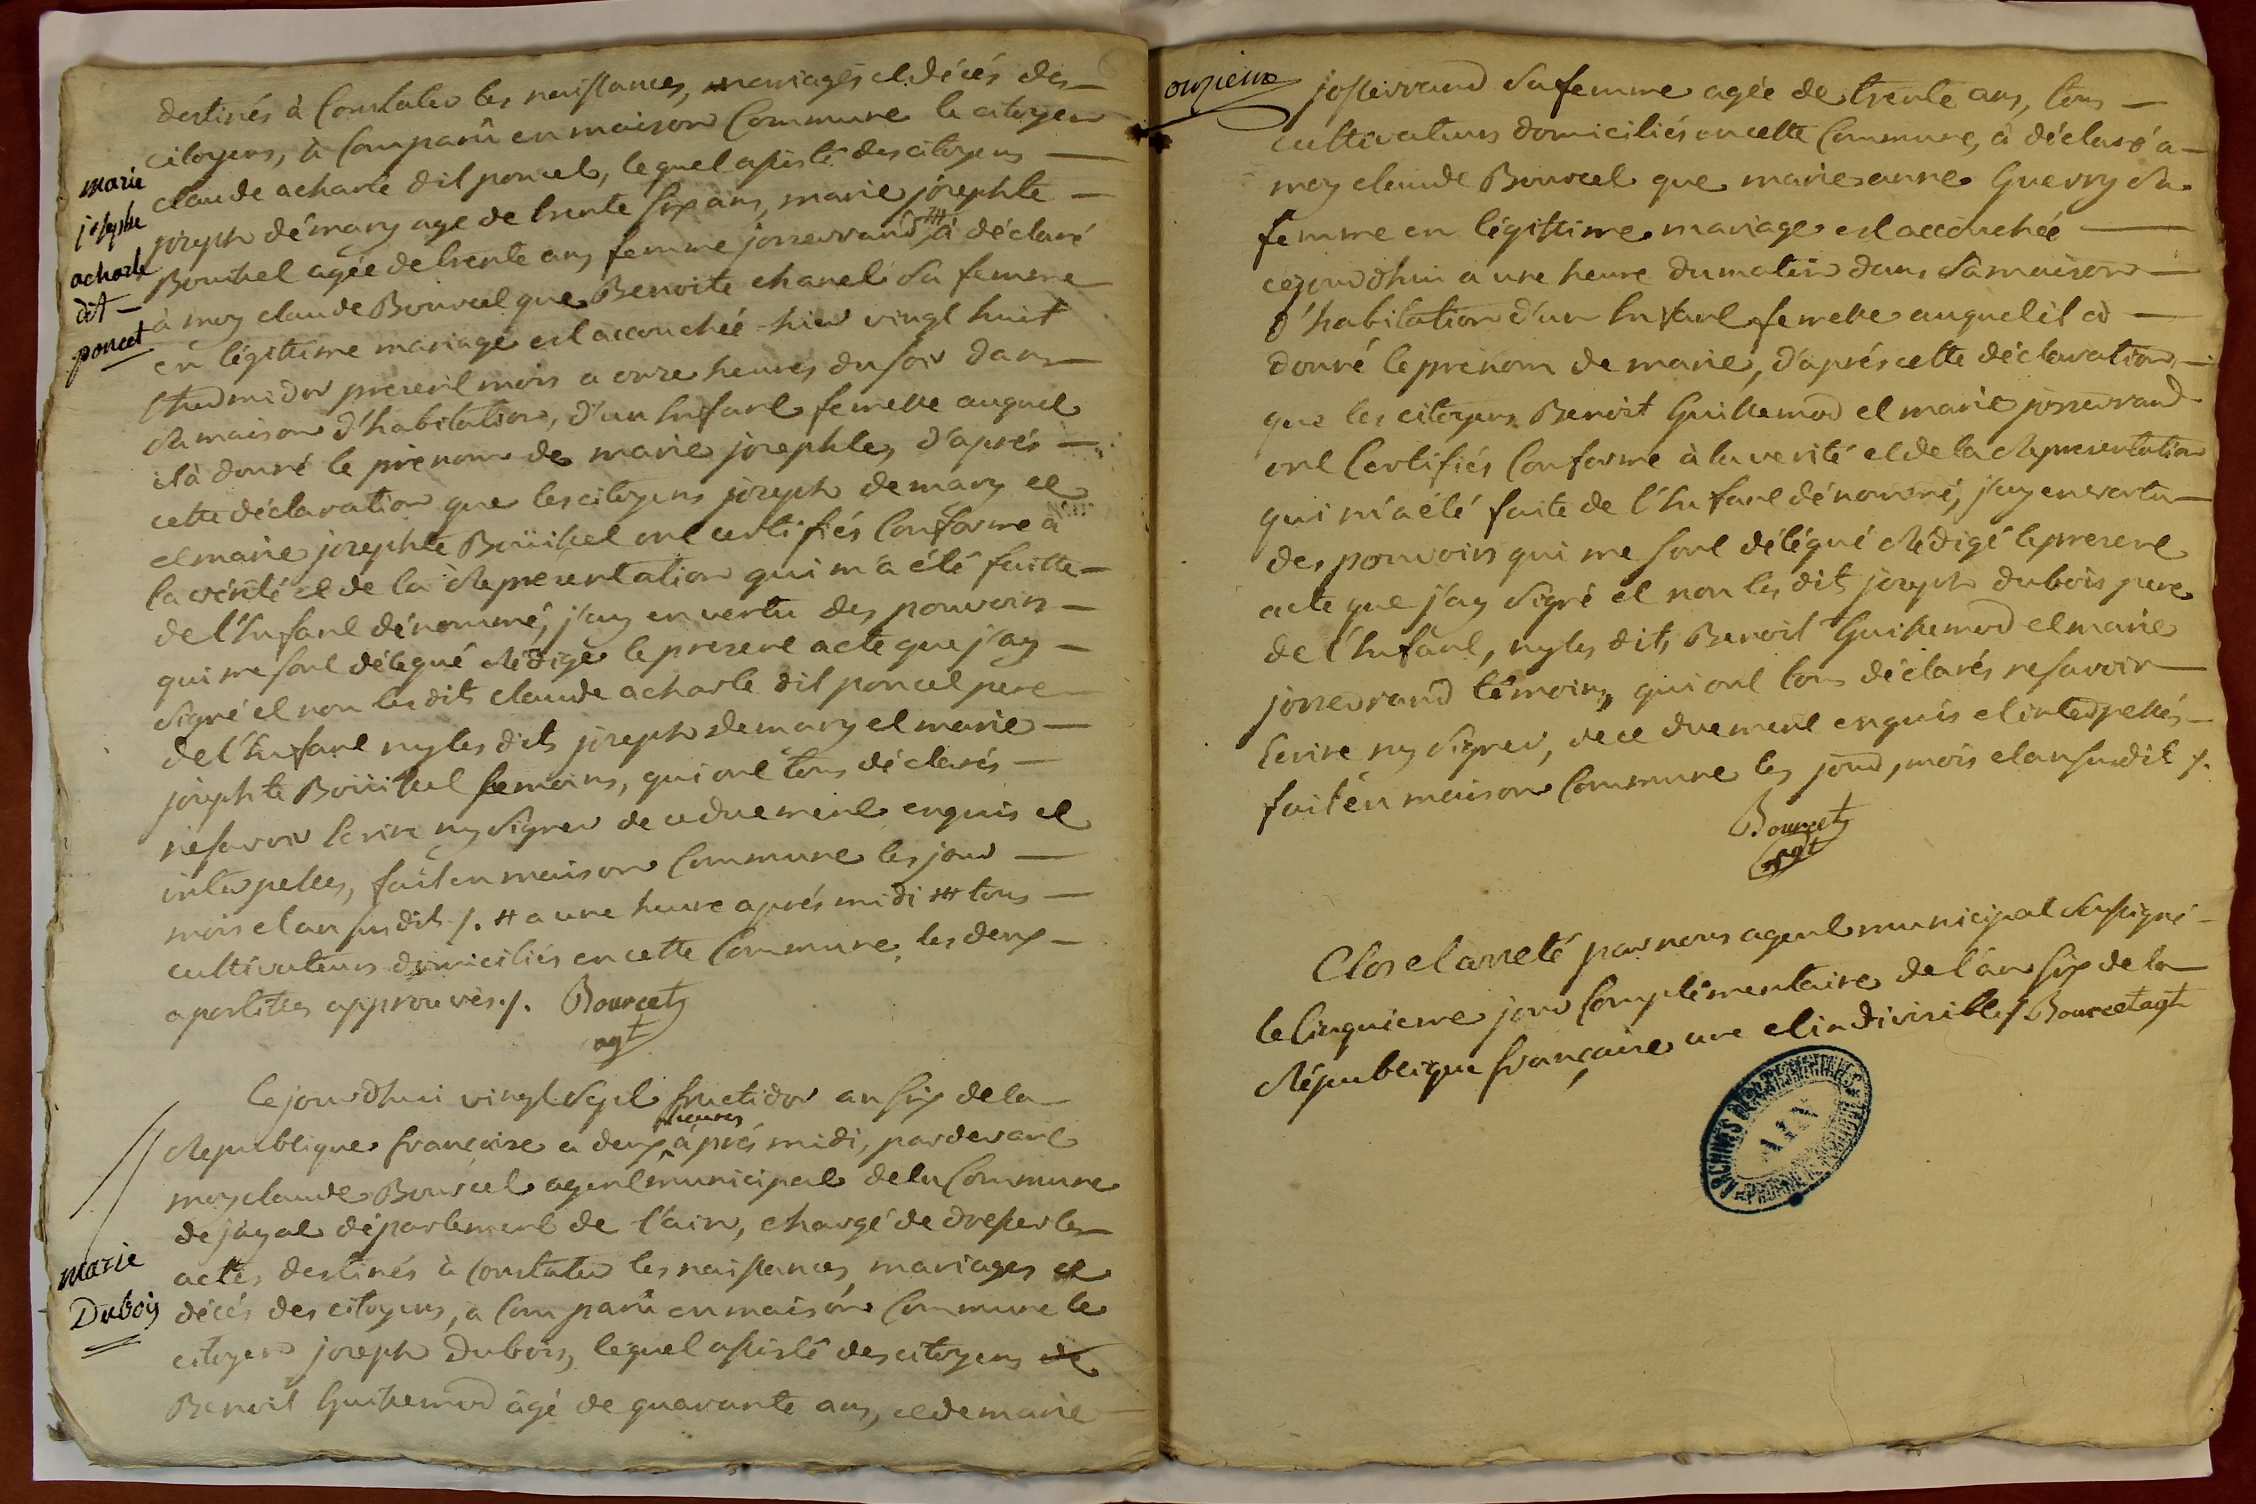 destinés à Constater les naissances, mariages et décés des
citoyens, à Comparû en maison Commune le citoyen
claude acharle dit poncet, lequel assisté des citoyens
joseph démary agé de trente six ans, marie josephte
Bouihet agée de trente ans femme josserrand ₶ à déclaré
à moy claude Bourcet que Benoite chanel sa femme
en légittime mariage est accouchée hier vingt huit
thermidor présent mois a onze heures du soir dans
sa maison d'habitation, d'un Enfant femelle auquel
il à donné le prénom de marie josephte, d'aprés
cette déclaration que les citoyens joseph demary et
et marie josephte Boüihet ont certifiés Conforme à
la vérité et de la Representation qui m'a été faitte
de l'Enfant dénommé, j'ay en vertu des pouvoirs
qui me sont délégué Rédigé le present acte que j'ay
signé et non les dits claude acharle dit poncet pere
de l'Enfant ny les dits joseph demary et marie
josephte Boüihet temoins, qui ont tous déclarés
ne savoir Ecrire ny signer de ce duement enquis et
interpellés, fait en maison Commune les jour
mois et an susdit ⁒. # a une heure aprés midi ₶ tous
cultivateurs domiciliés en cette Commune, les deux
apostilles approuvés ⁒. Bourcet
agt
marie
josephte
acharle
dit
poncet
Cejourdhui vingt sept fructidor an six de la
Republique françoise a deux heures aprés midi, pardevant
moy claude Bourcet agent municipal de la Commune
de jayat département de l'ain, chargé de dresser les
actes, destinés à Constater les naissances, mariages et
décés des citoyens, a Comparû en maison Commune le
citoyen joseph Dubois, lequel assisté des citoyens de
Benoit Guillemod âgé de quarante ans, et de marie
marie
Dubois
onzieme
josserrand sa femme agée de trente ans, tous
cultivateurs domiciliés en cette Commune, à déclaré a
moy claude Bourcet que marie anne Guerry sa
femme en légittime mariage est accouchée
cejourdhui a une heure du matin dans sa maison
d'habitation d'un Enfant femelle auquel il a
donné le prénom de marie, d'aprés cette déclaration
que les citoyens Benoit Guillemod et marie josserrand
ont Certifiés Conforme à la verité et de la Representation
qui m'a été faite de l'Enfant dénommé, j'ay en vertu
des pouvoirs qui me sont délégué Rédigé le present
acte que j'ay signé et non les dit joseph dubois pere
de l'Enfant, ny les dits Benoit Guillemod et marie
josserrand témoins, qui ont tous déclarés ne savoir
Ecrire ny signer, de ce duement enquis et interpellés
fait en maison Commune les jour, mois et an susdit ⁒.
Bourcet
agt
Clos et arreté par nous agent municipal soussigné
le Cinquieme jour Complémentaire de l'an six de la
République française une et indivisible ⁒. Bourcet agt
ARCHIVES DEPARTEMENTALES
AIN